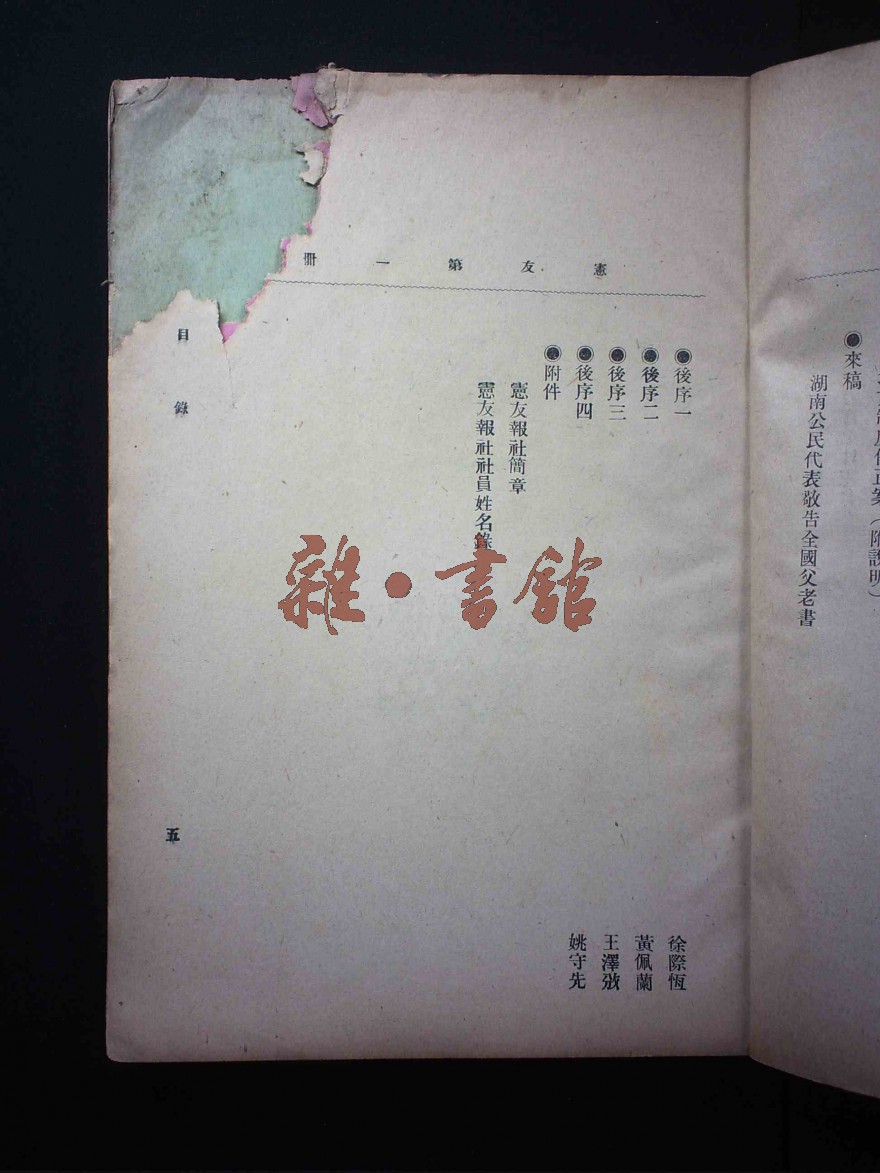 ●來稿
湖南公民代表敬告全國父老書
憲友第一冊
●後序一 徐際恆
●後序二 黃佩蘭
●後序三 王澤攽
●後序四 姚守先
●附件
憲友報社簡章
憲友報社社員姓名錄
目錄
五
雜·書館